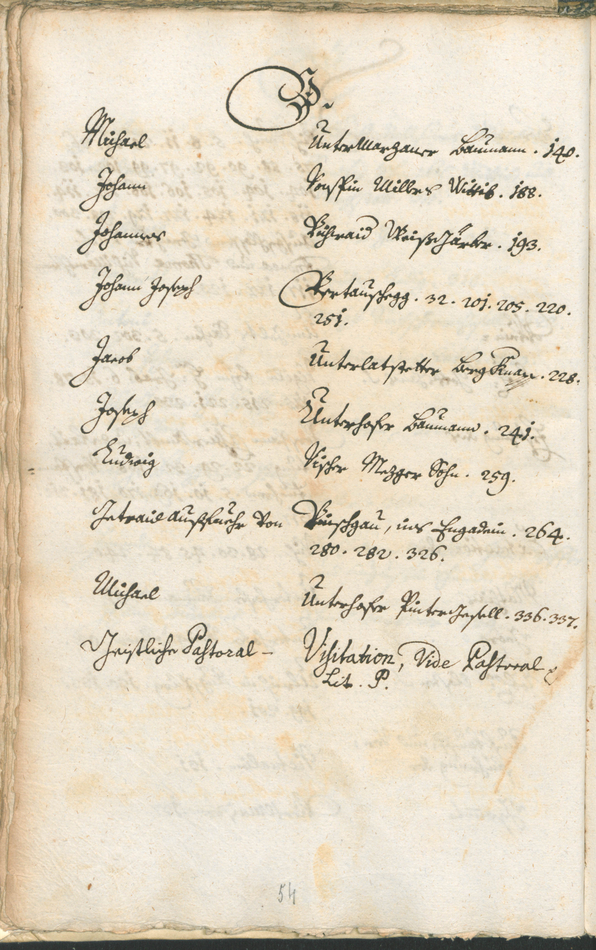 V.
Michael Untermarzoner Baumann. 140.
Johann Millers Wittib. 188.
Johannes Weißgärber. 193.
Johann Joseph Vertauschegg. 32. 201. 205. 220.
251.
Jacob Unterlatstetter BergKnap. 228.
Joseph Unterhofer Baumann. 241.
Ludwig Vischer Mezger Sohn. 259.
Getraid Ausfuehr von Vinschgau, ins Engadein. 264.
280. 282. 326.
Michael Unterhofer PinterGesell. 336. 337.
Geistliche Pastoral- Visitation, Vide Pastoral
Lit. P.
54